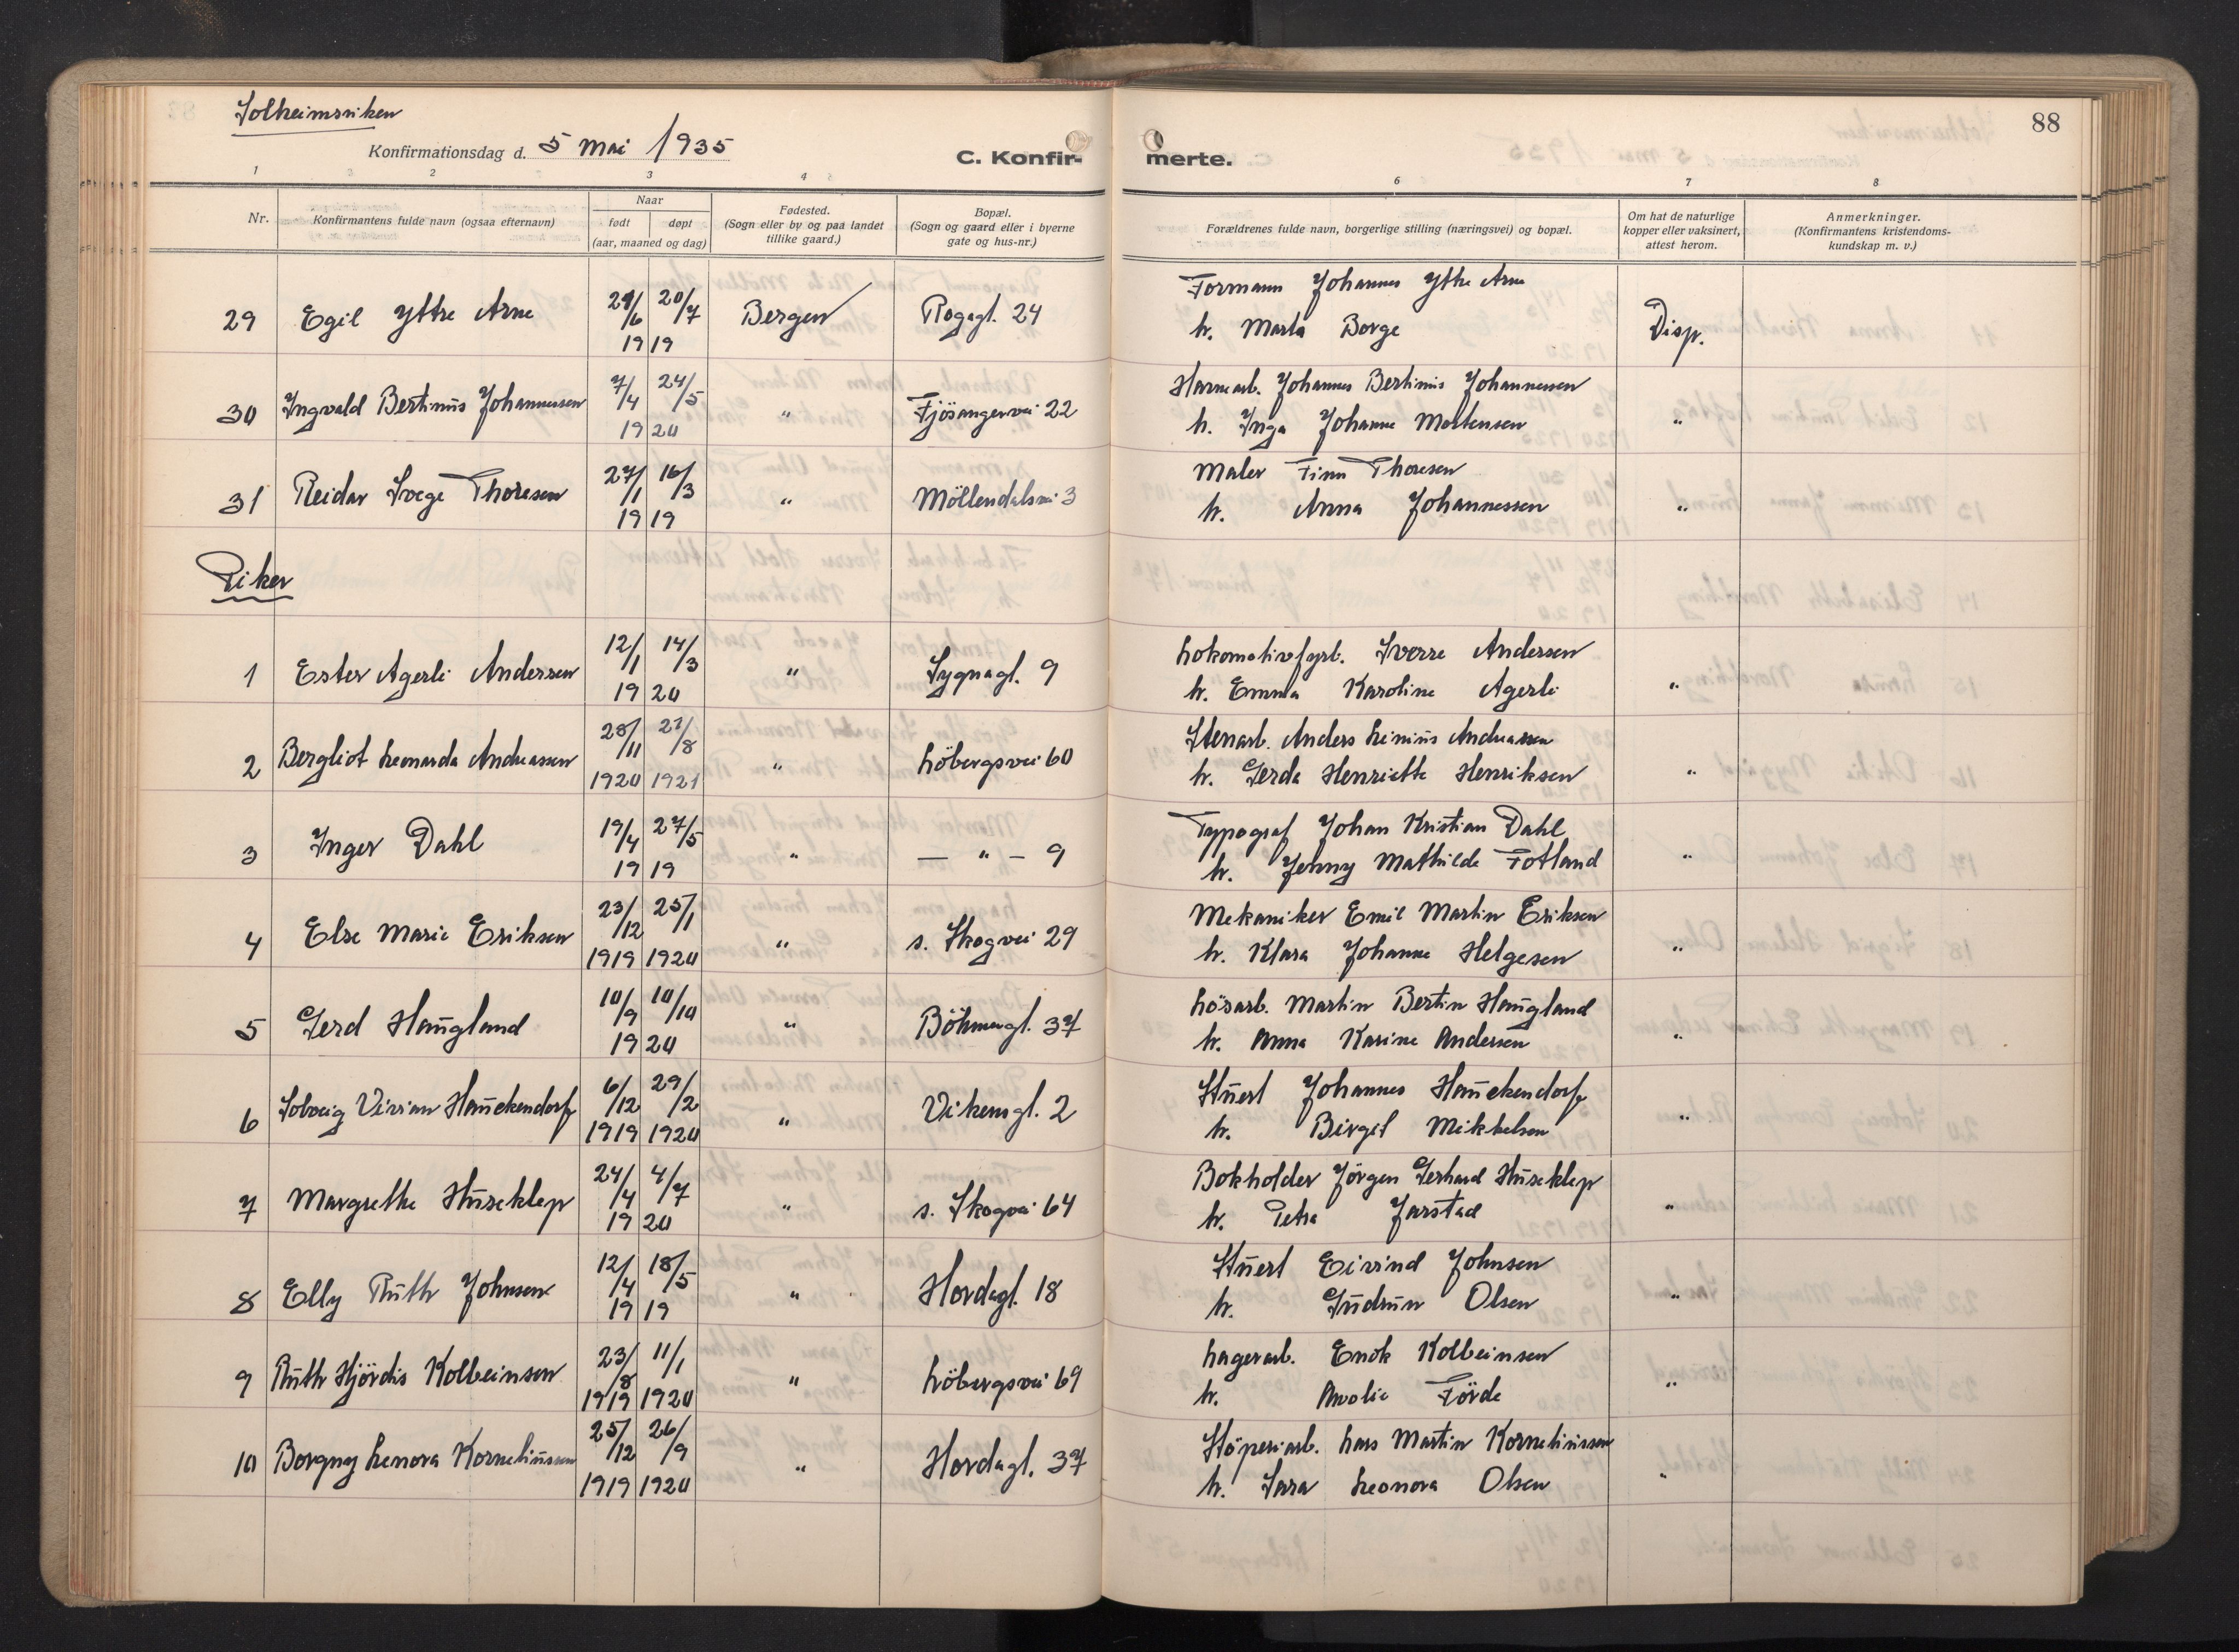 Solheimsviken
Konfirmationsdag d. 5 mai 1935
C. Konfirmerte.
88
1 2 3 4 6 7 8
Nr. Konfirmantens fulde navn (ogsaa efternavn) Naar født døpt (aar, maaned og dag) Fødested. (Sogn eller by og paa landet tillike gaard.) Bopæl. (Sogn og gaard eller i byerne gate og hus-nr.) Forældrenes fulde navn, borgerlige stilling (næringsvei) og bopæl. Om hat de naturlige kopper eller vaksinert, attest herom. Anmerkninger. (Konfirmantens kristendoms-kundskap m. v.)
29 Egil Ytre Arne 29/6 20/7 1919 Bergen Rogagt. 24 Formann Johannes Ytre Arne
h. Marta Borge Disp.
30 Ingvald Bertinus Johannessen 7/4 24/5 1920 " Fjösangervei 22 Havnearb. Johannes Bertinus Johannessen
h. Inga Johanne Mortensen "
31 Reidar Svege Thoresen 27/1 16/3 1919 " Möllendalsvei 3 Maler Finn Thoresen
h. Anna Johannessen "
Piker
1 Ester Agerli Andersen 12/1 14/3 1920 " Sygnagt. 9 Lokomotivfyrb. Sverre Andersen
h. Emma Karoline Agerli "
2 Bergliot Leonarda Andreassen 28/11 1920 27/8 1921 " Löbergsvei 60 Stenarb. Anders Linius Andreassen
h. Gerda Henriette Henriksen "
3 Inger Dahl 19/4 27/5 1919 " — " — 9 Typograf Johan Kristian Dahl
h. Jenny Mathilde Fotland "
4 Else Marie Eriksen 23/12 1919 25/1 1920 " s. Skogvei 29 Mekaniker Emil Martin Eriksen
h. Klara Johanne Helgesen "
5 Gerd Haugland 10/9 10/10 1920 " Böhmergt. 37 Lösarb. Martin Bertin Haugland
h. Anna Karine Andersen "
6 Solveig Vivian Hauckendorff 6/12 1919 29/2 1920 " Vikensgt. 2 Stuert Johannes Hauckendorff
h. Birgit Mikkelsen "
7 Margrethe Huseklep 24/4 4/7 1920 " s. Skogvei 64 Bokholder Jörgen Gerhard Huseklep
h. Petra Jarstad "
8 Elly Ruth Johnsen 12/4 18/5 1919 " Hordagt. 18 Stuert Eivind Johnsen
h. Gudrun Olsen "
9 Ruth Hjördis Kolbeinsen 23/8 1919 11/1 1920 " Löbergsvei 69 Lagerarb. Enok Kolbeinsen
h. Amalie Förde "
10 Borgny Lenora Korneliussen 25/12 1919 26/9 1920 " Hordagt. 37 Stöperiarb. Lars Martin Korneliussen
h. Sara Leonora Olsen "